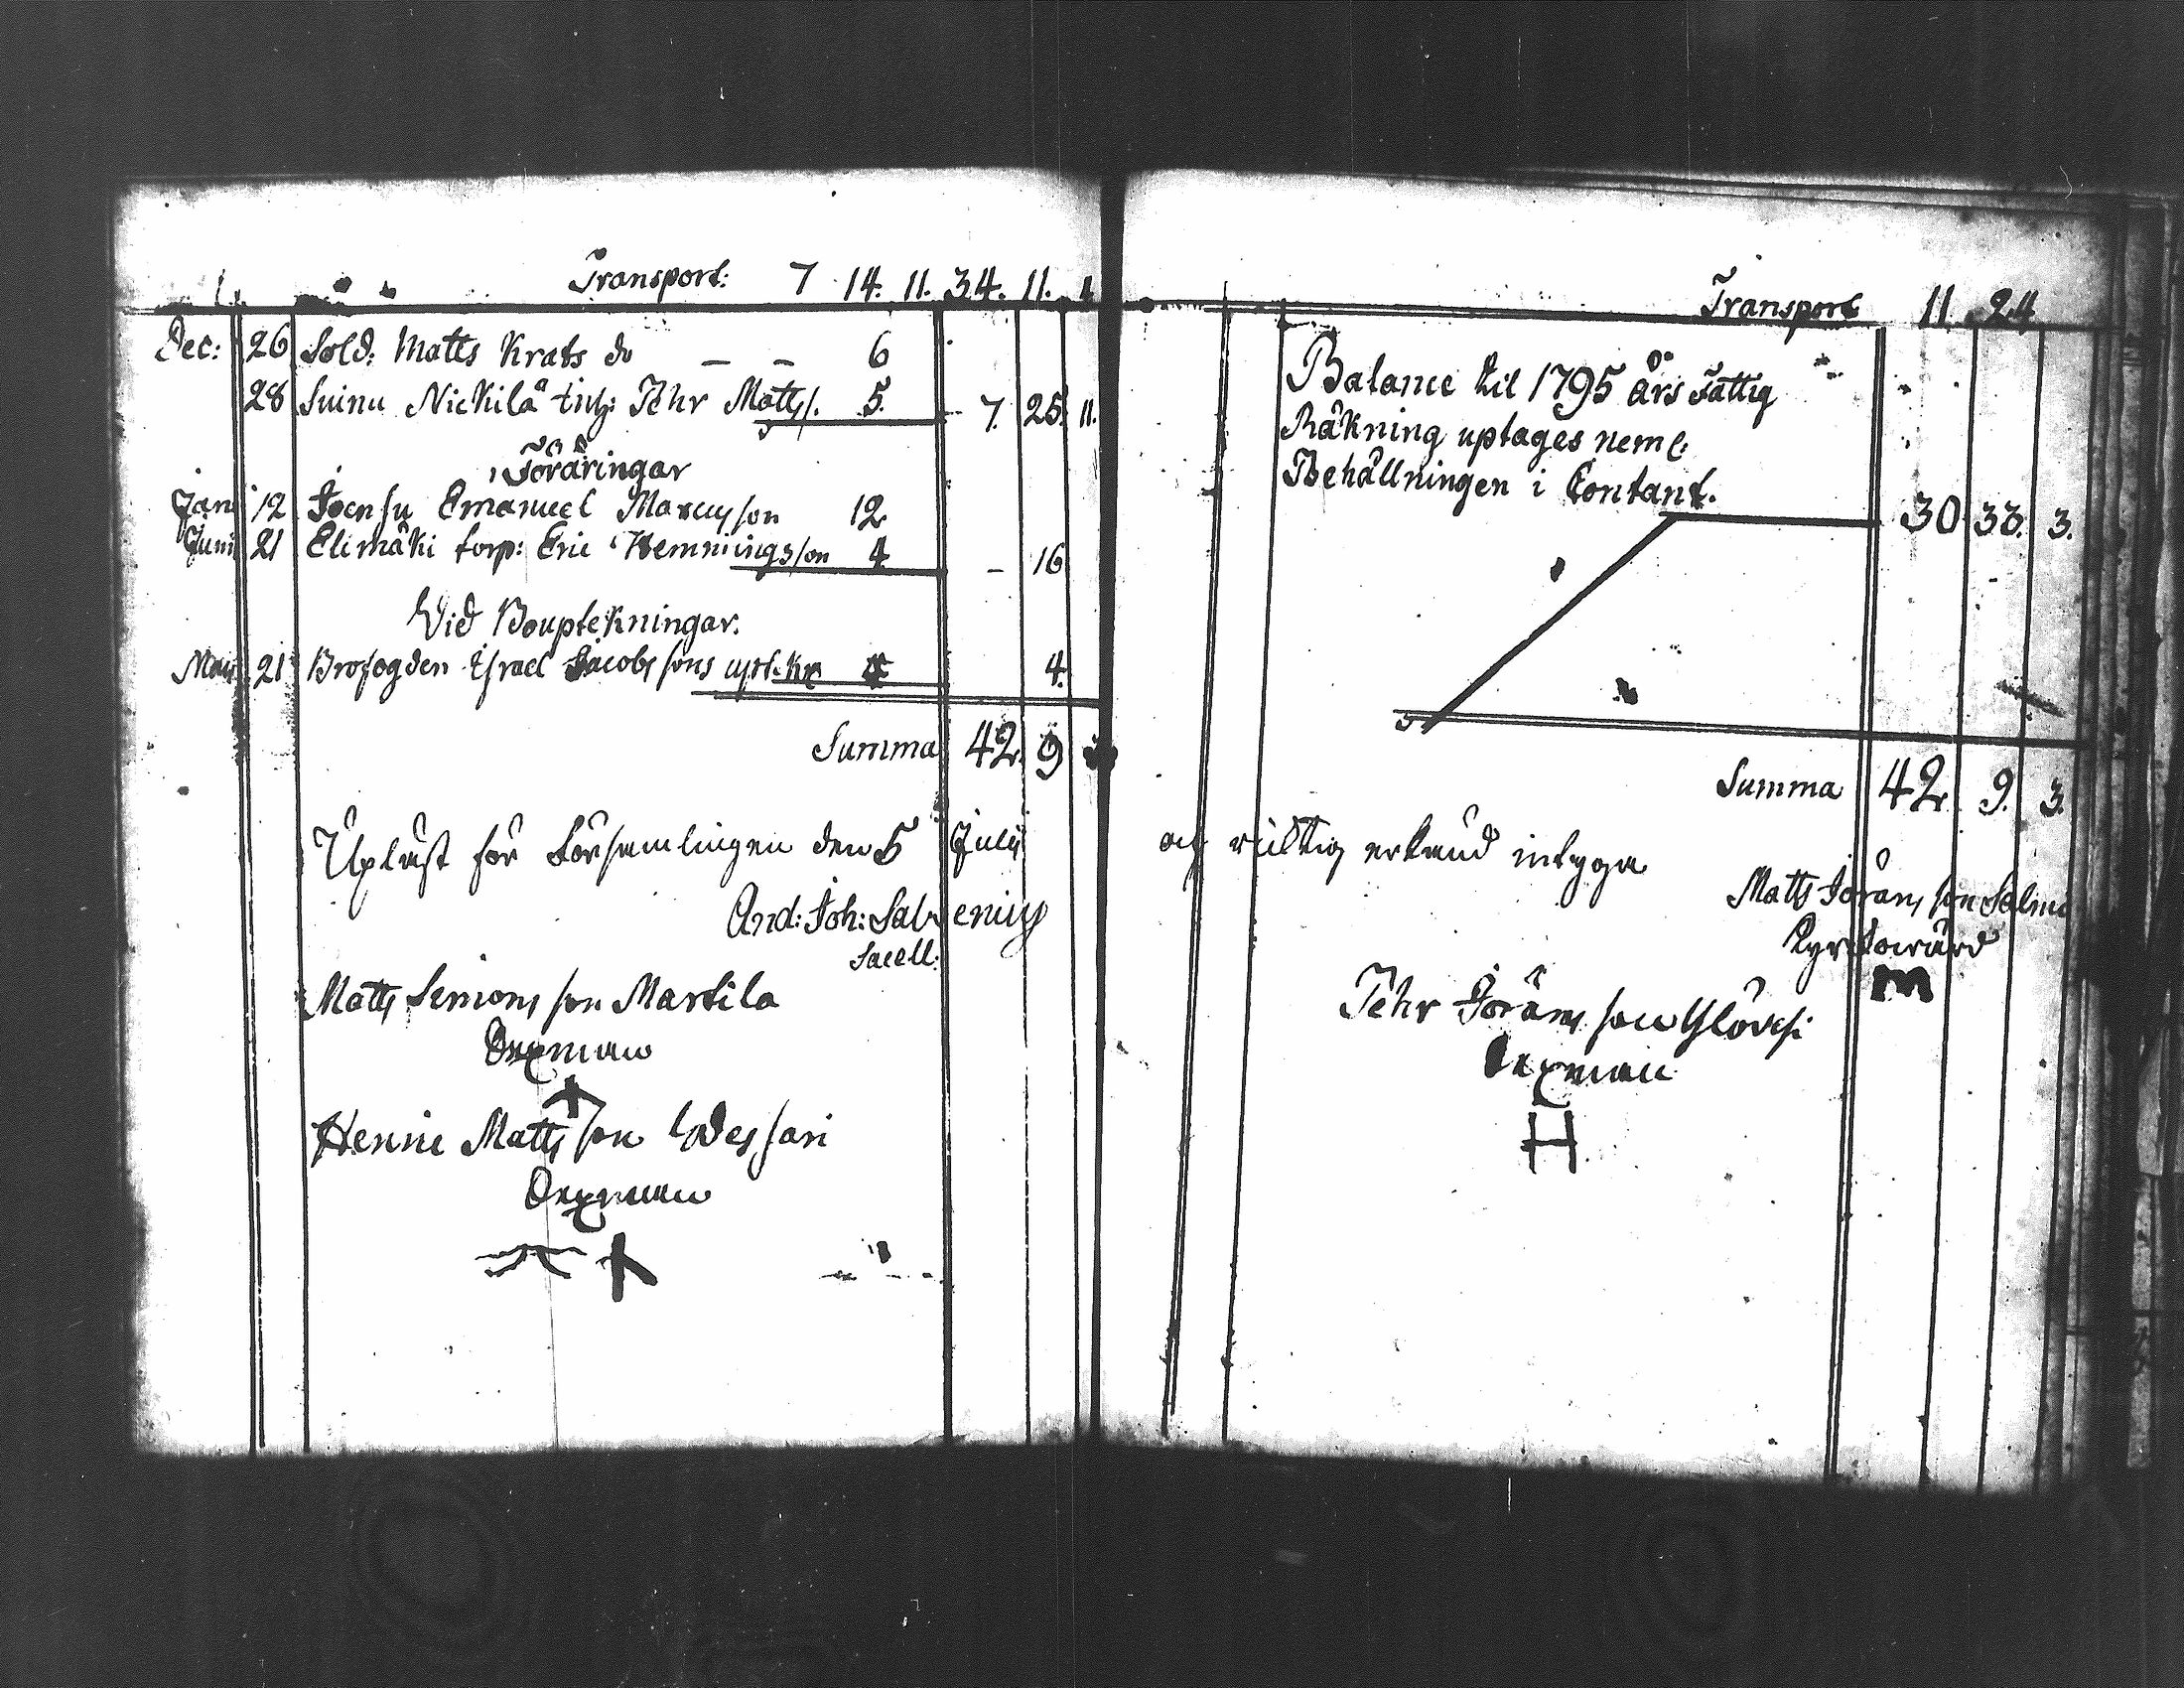 Transport: 7 14. 11. 34. 11.
Dec: 26 Sold: Matts Krats do — — 6
28 Suinu Nickilä Pehr Mattss. 5. 7. 25. 11.
Föräringar
Jan: 12 Joensu Emanuel Marcusson 12
Juni 21 Elimäki torp: Eric Hemmingsson 4 – 16
Vid Bouptekningar.
Maii 21 Brofogden Israel Jacobssons 4 4.
Summa 42. 9
Upläst för Församlingen den 5 Julii
And: Joh: Salvenius
Sacell:
Matts Simonsson Martila
Sexman
Henric Mattsson
Sexman
Transport 11. 24
Balance til 1795 års Fattig
Räkning uptages neml:
Behållningen i Contant. 30 33. 3.
Summa 42. 9. 3.
och richtig erkänd intyga
Matts Jöransson Salmi
Kyrkowärd
m
Pehr Jöransson
Sexman
H